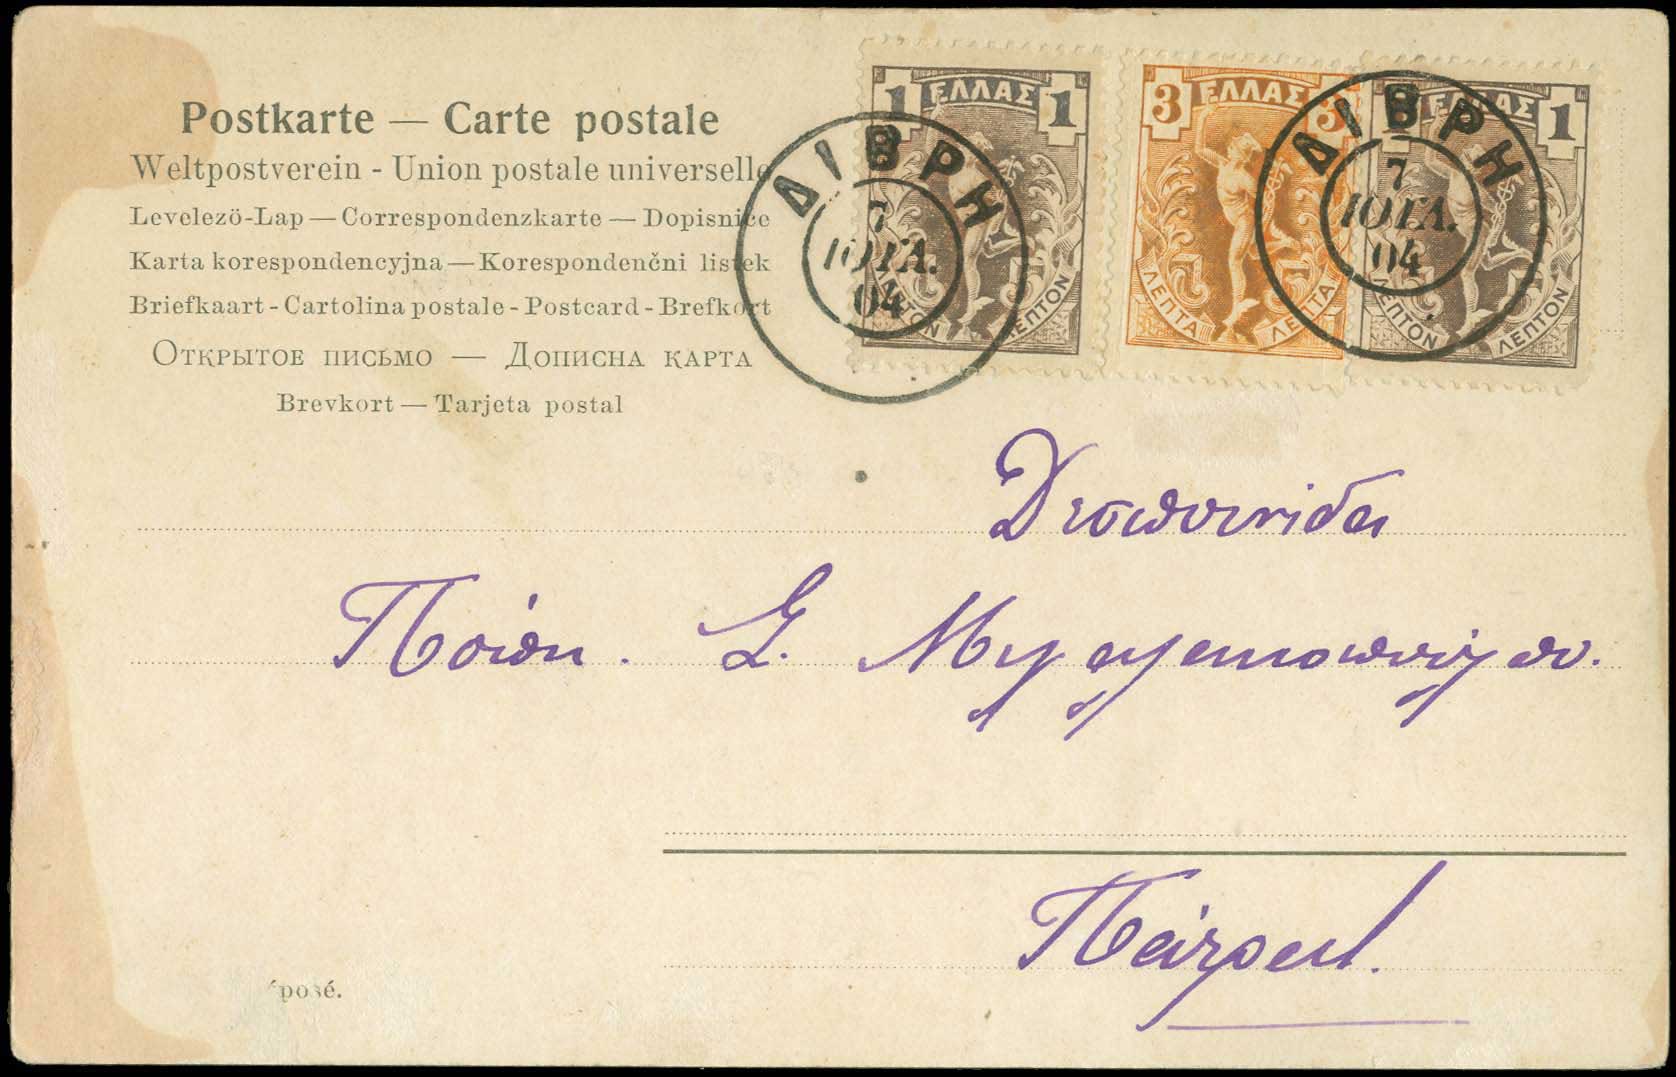 Postkarte — Carte postale
Weltpostverein - Union postale universelle
Levelező-Lap — Correspondenzkarte — Dopisnice
Karta korespondencyjna — Korespondenčni listek
Briefkaart - Cartolina postale - Postcard - Brefkort
Открытое письмо — Дописна карта
Brevkort — Tarjeta postal
1 ΕΛΛΑΣ 1
ΛΕΠΤΟΝ ΛΕΠΤΟΝ
3 ΕΛΛΑΣ 3
ΛΕΠΤΑ ΛΕΠΤΑ
ΕΛΛΑΣ 1
ΛΕΠΤΟΝ ΛΕΠΤΟΝ
ΔΙΒΡΗ
7
ΙΟΥΛ.
04
ΔΙΒΡΗ
7
ΙΟΥΛ.
04
Δεσποινίδα
Πόπη. Σ.
Πάτρας.
posé.